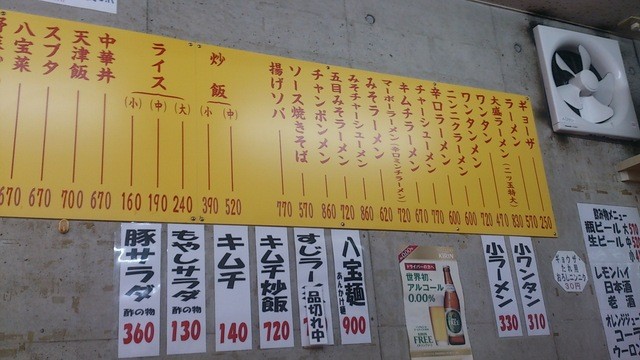 ギョーザ 250
ラーメン 570
大盛ラーメン(二ッ玉特大) 830
ワンタン 470
ワンタンメン 720
ニンニクラーメン 600
辛口ラーメン 600
チャーシューメン 770
キムチラーメン 670
マーボーラーメン(辛口ミンチラーメン) 720
みそラーメン 620
みそチャーシューメン 860
五目みそラーメン 720
チャンポンメン 860
ソース焼きそば 570
揚げソバ 770
炒飯
(中) 520
(小) 390
ライス
(大) 240
(中) 190
(小) 160
中華丼 670
天津飯 700
スブタ 670
八宝菜 670
野菜 670
小ワンタン 310
小ラーメン 330
八宝麺
あんかけ麺
900
すじラー
品切れ中
キムチ炒飯 720
キムチ 140
もやしサラダ
酢の物
130
豚サラダ
酢の物
360
ドライバーの方へ
世界初。
アルコール
0.00%
FREE
ギョウザ
たれ用
おろしニンニク
30円
飲み物メニュー
瓶ビール 大
生ビール 中
小
レモンハイ
日本酒
老酒
オレンジジュー
コー
ウーロン